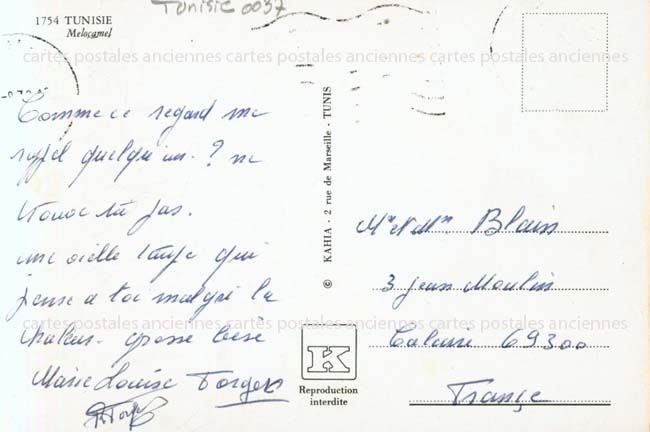 Tunisie 0037
1754 TUNISIE
Melocamel
cartes postales anciennes cartes postales anciennes cartes postales anciennes
Comme ce regard me
rappel quelqu'un - ? ne
trouve tu pas.
une vieille taupe qui
pense a toi malgré la
chaleur - grosse bise
Marie Louise Forgers
© KAHIA - 2 rue de Marseille - TUNIS
Mr et Mme Blain
3 Jean Moulin
cartes postales anciennes cartes postales anciennes cartes postales anciennes
Caluire 69300
France
K
Reproduction
interdite